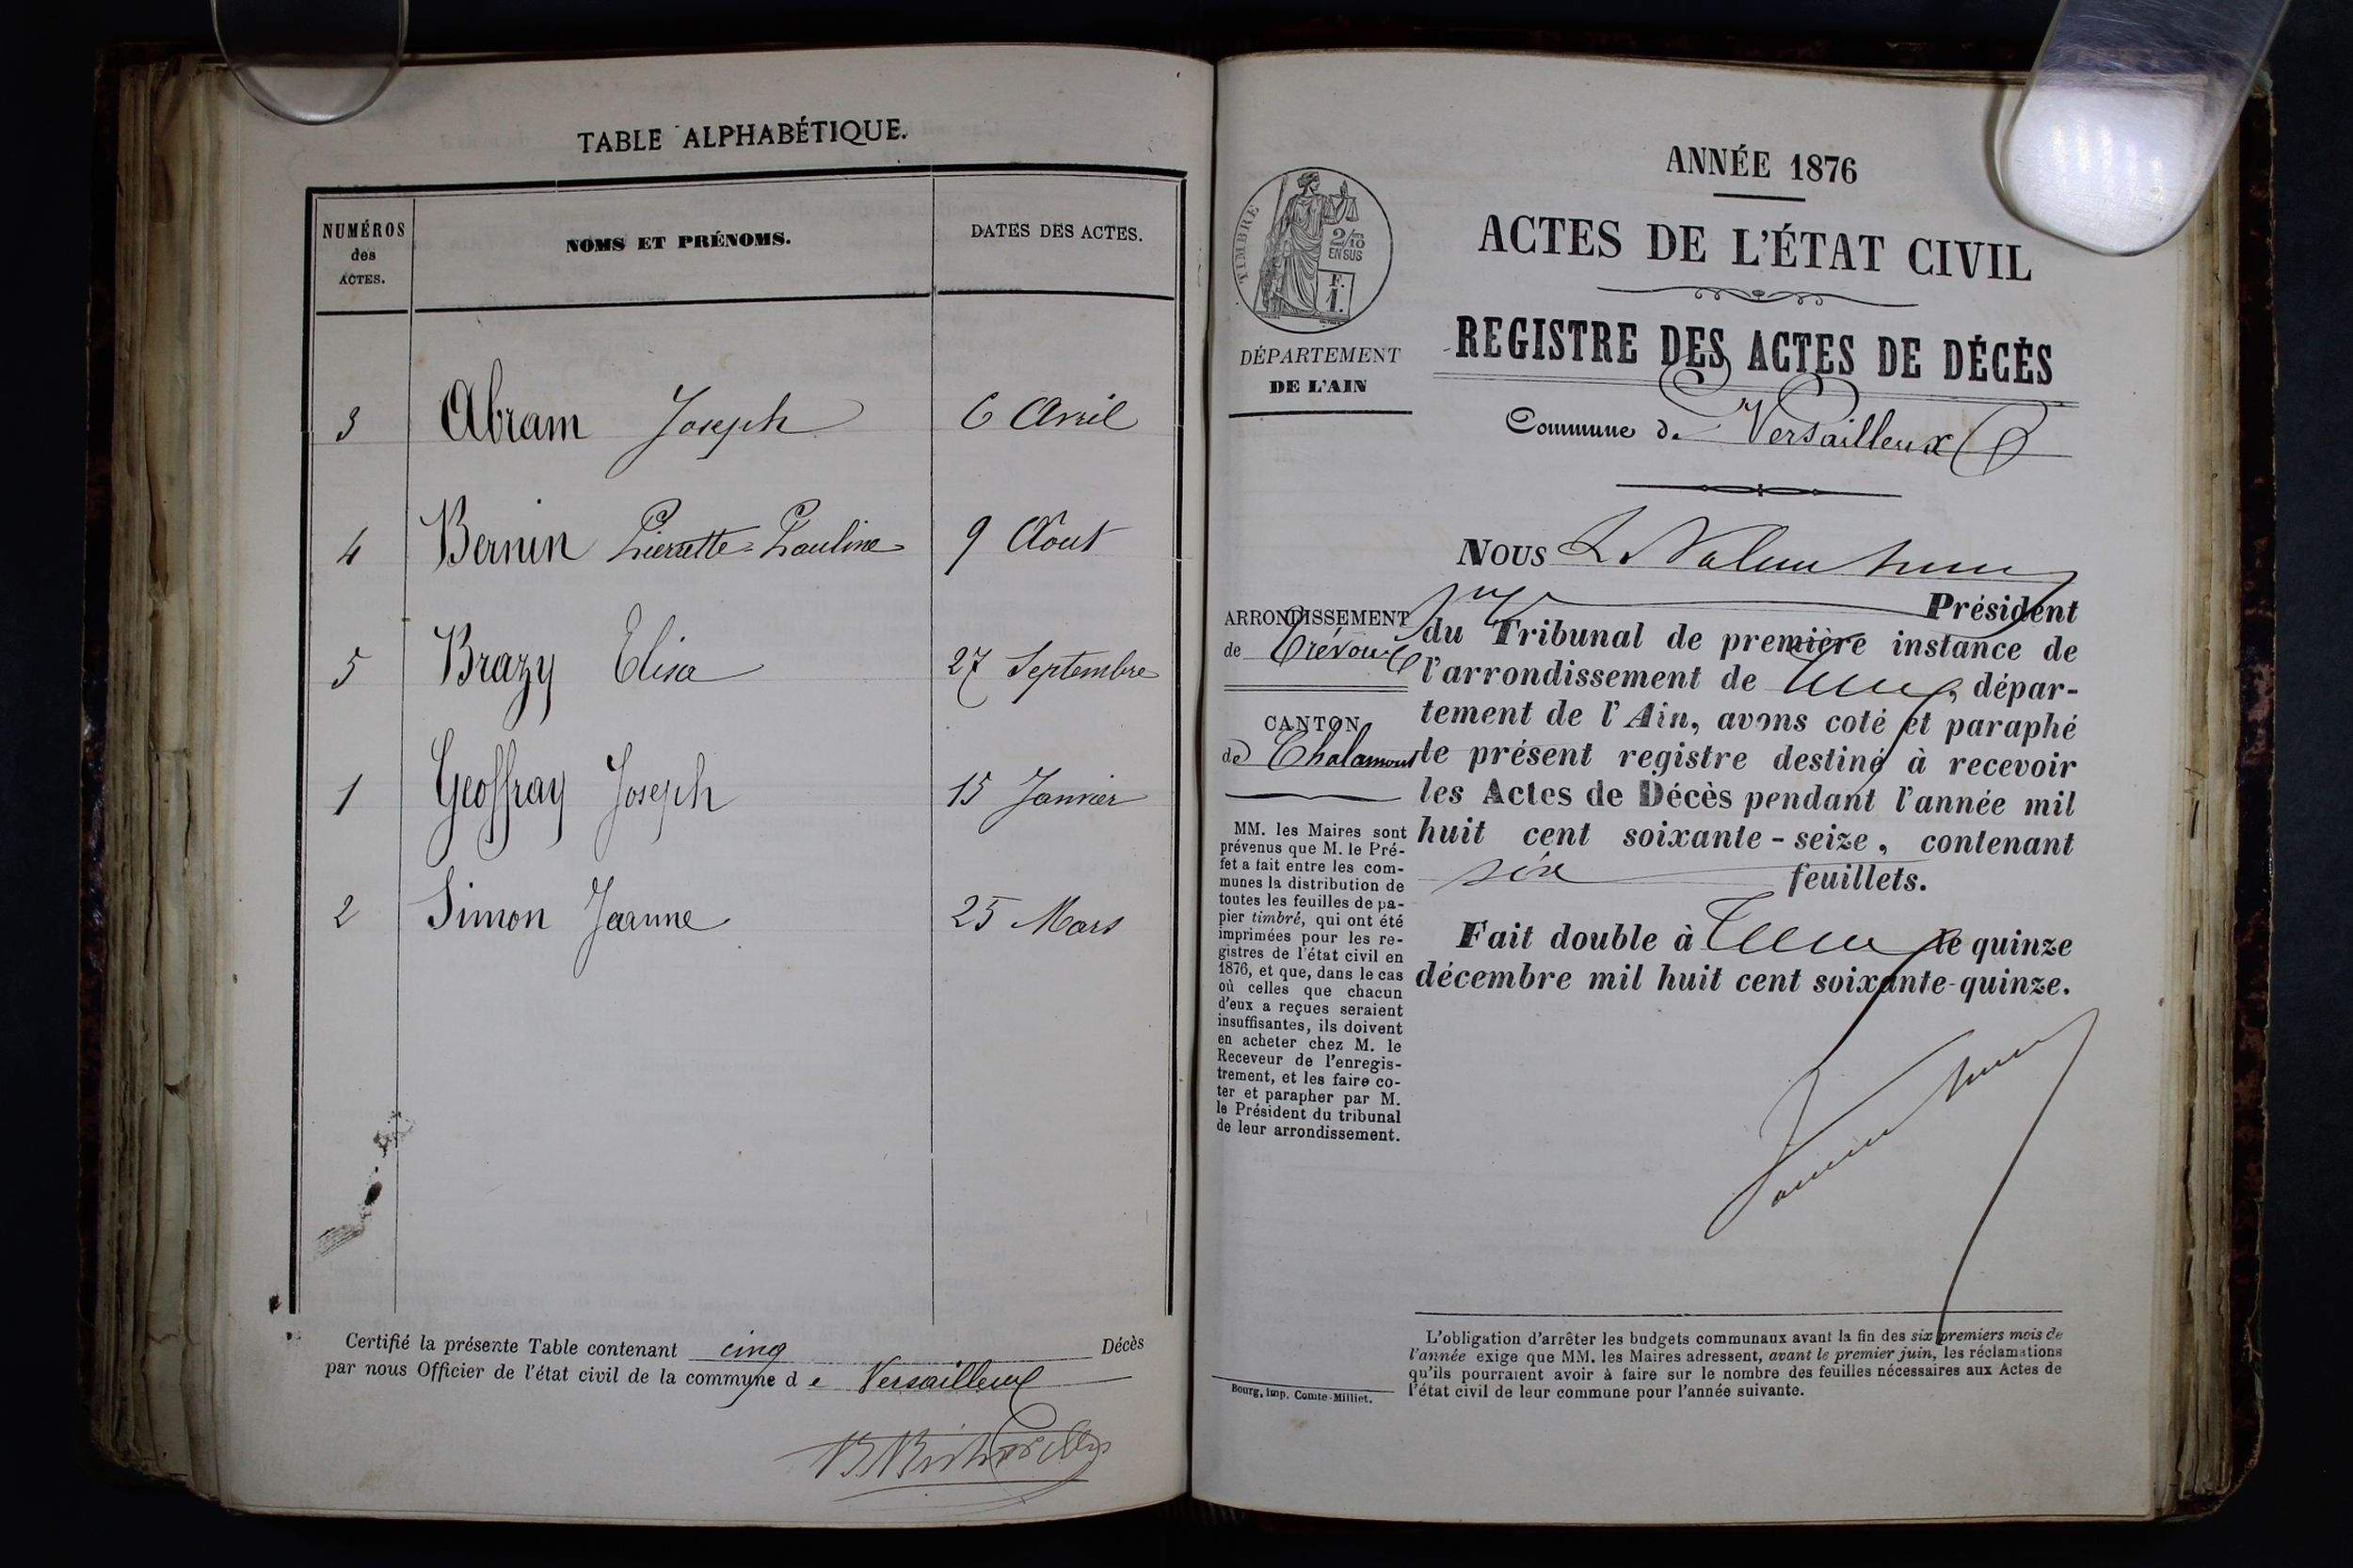 TABLE ALPHABÉTIQUE.
NUMÉROS
des
ACTES.
NOMS ET PRÉNOMS.
DATES DES ACTES.
3 Abram Joseph 6 Avril
4 Bernin Pierrette-Pauline 9 Aout
5 Brazy Elisa 27 Septembre
1 Geoffray Joseph 15 Janvier
2 Simon Jeanne 25 Mars
Certifié la présente Table contenant cinq Décès
par nous Officier de l'état civil de la commune de Versailleux
TIMBRE
2/10
EN SUS
F.
1.
DÉPARTEMENT
DE L'AIN
ARRONDISSEMENT
de Trévoux
CANTON
de Chalamont
MM. les Maires sont
prévenus que M. le Pré-
fet a fait entre les com-
munes la distribution de
toutes les feuilles de pa-
pier timbré, qui ont été
imprimées pour les re-
gistres de l'état civil en
1876, et que, dans le cas
où celles que chacun
d'eux a reçues seraient
insuffisantes, ils doivent
en acheter chez M. le
Receveur de l'enregis-
trement, et les faire co-
ter et parapher par M.
le Président du tribunal
de leur arrondissement.
Bourg, imp. Comte-Milliet.
ANNÉE 1876
ACTES DE L'ÉTAT CIVIL
REGISTRE DES ACTES DE DÉCÈS
Commune de Versailleux
NOUS
Président
du Tribunal de première instance de
l'arrondissement de , dépar-
tement de l'Ain, avons coté et paraphé
le présent registre destiné à recevoir
les Actes de Décès pendant l'année mil
huit cent soixante-seize, contenant
six feuillets.
Fait double à le quinze
décembre mil huit cent soixante-quinze.
L'obligation d'arrêter les budgets communaux avant la fin des six premiers mois de
l'année exige que MM. les Maires adressent, avant le premier juin, les réclamations
qu'ils pourraient avoir à faire sur le nombre des feuilles nécessaires aux Actes de
l'état civil de leur commune pour l'année suivante.